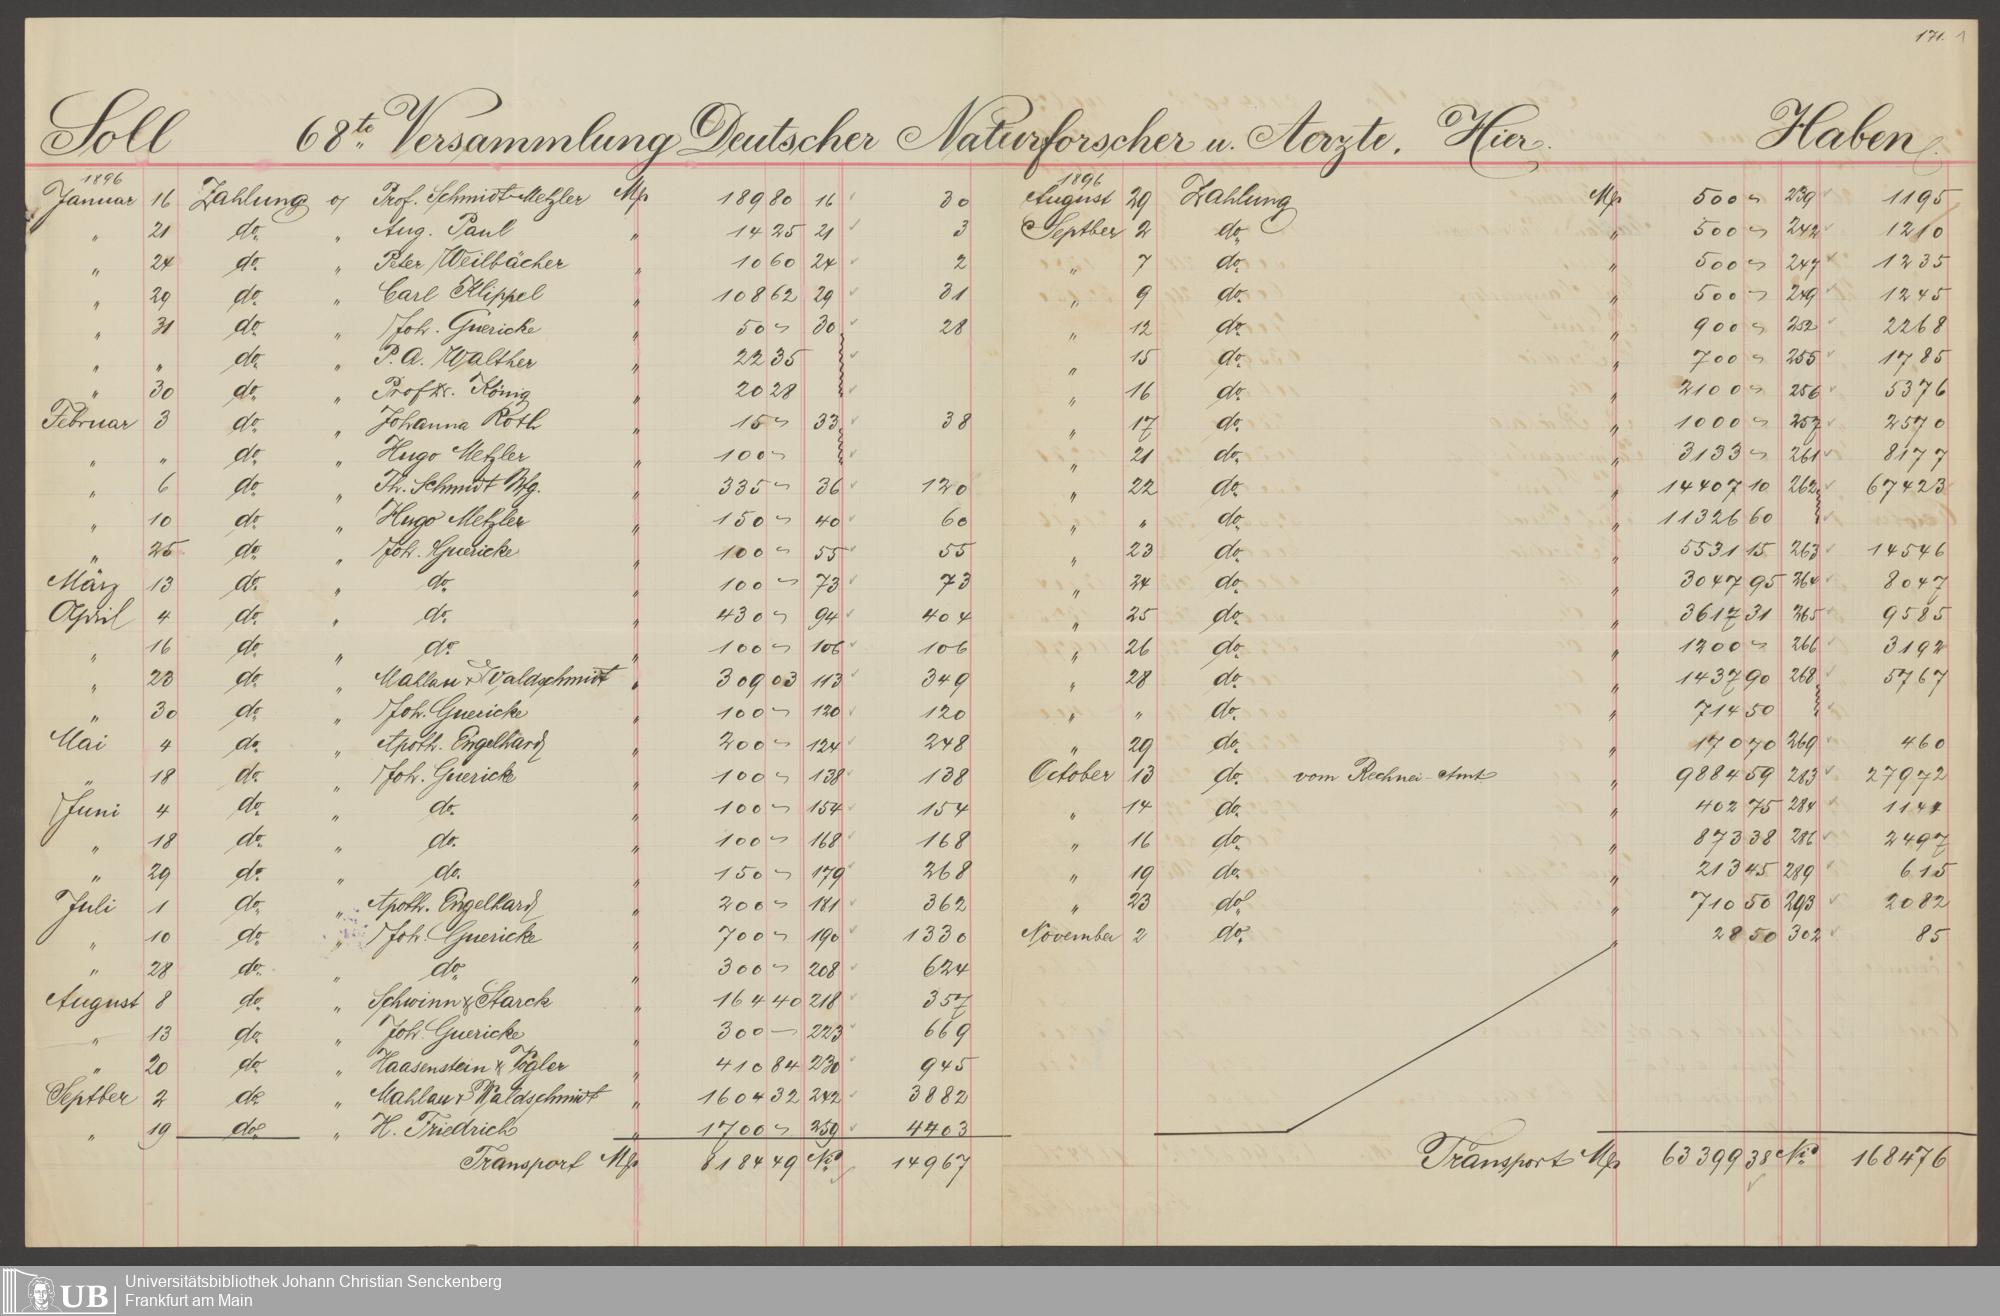 171. 1
Soll 68te Versammlung Deutscher Naturforscher u. Aerzte. Hier. Haben
1896
Januar 16 Zahlung Prof. Schmidt-Metzler M 189 80 16 30
" 21 do. " Aug. Paul " 14 25 21 3
" 24 do. " Peter Weilbächer " 10 60 24 2
" 29 do. " Carl Klippel " 108 62 29 31
" 31 do. " Joh. Guericke " 50 - 30 28
" " do. " P. A. Walther " 22 35
" 30 do. " Prof. Dr. König " 20 28
Februar 3 do. " Johanna Roth " 15 - 33 38
" " do. " Hugo Metzler " 100 -
" 6 do. " Th. Schmidt Wg. " 335 - 36 120
" 10 do. " Hugo Metzler " 150 - 40 60
" 25 do. " Joh. Guericke " 100 - 55 55
März 13 do. " do. " 100 - 73 73
April 4 do. " do. " 430 - 94 404
" 16 do. " do. " 100 - 106 106
" 23 do. " Mahlau & Waldschmidt " 309 03 113 349
" 30 do. " Joh. Guericke " 100 - 120 120
Mai 4 do. " Apoth. Engelhard " 200 - 124 248
" 18 do. " Joh. Guericke " 100 - 138 138
Juni 4 do. " do. " 100 - 154 154
" 18 do. " do. " 100 - 168 168
" 29 do. " do. " 150 - 179 268
Juli 1 do. " Apoth. Engelhard " 200 - 181 362
" 10 do. " Joh. Guericke " 700 - 190 1330
" 28 do. " do. " 300 - 208 624
August 8 do. " Schwinn & Starck " 164 40 218 357
" 13 do. " Joh. Guericke " 300 - 223 669
" 20 do. " Haasenstein & Vogler " 410 84 230 945
Septber 2 do. " Mahlau & Waldschmidt " 1604 32 242 3882
" 19 do. " H. Friedrich " 1700 - 259 4403
Transport M 8184 49 No. 14967
1896
August 29 Zahlung M 500 - 239 1195
Septber 2 do. " 500 - 242 1210
" 7 do. " 500 - 247 1235
" 9 do. " 500 - 249 1245
" 12 do. " 900 - 252 2268
" 15 do. " 700 - 255 1785
" 16 do. " 2100 - 256 5376
" 17 do. " 1000 - 257 2570
" 21 do. " 3133 - 261 8177
" 22 do. " 14407 10 262 67423
" " do. " 11326 60
" 23 do. " 5531 15 263 14546
" 24 do. " 3047 95 264 8047
" 25 do. " 3617 31 265 9585
" 26 do. " 1200 - 266 3192
" 28 do. " 1437 90 268 5767
" " do. " 714 50
" 29 do. " 170 70 269 460
October 13 do. vom Rechnei-Amt " 9884 59 283 27972
" 14 do. " 402 75 284 1144
" 16 do. " 873 38 286 2497
" 19 do. " 213 45 289 615
" 23 do. " 710 50 293 2082
November 2 do. " 28 50 302 85
Transport M 63399 38 No. 168476
UB
Universitätsbibliothek Johann Christian Senckenberg
Frankfurt am Main